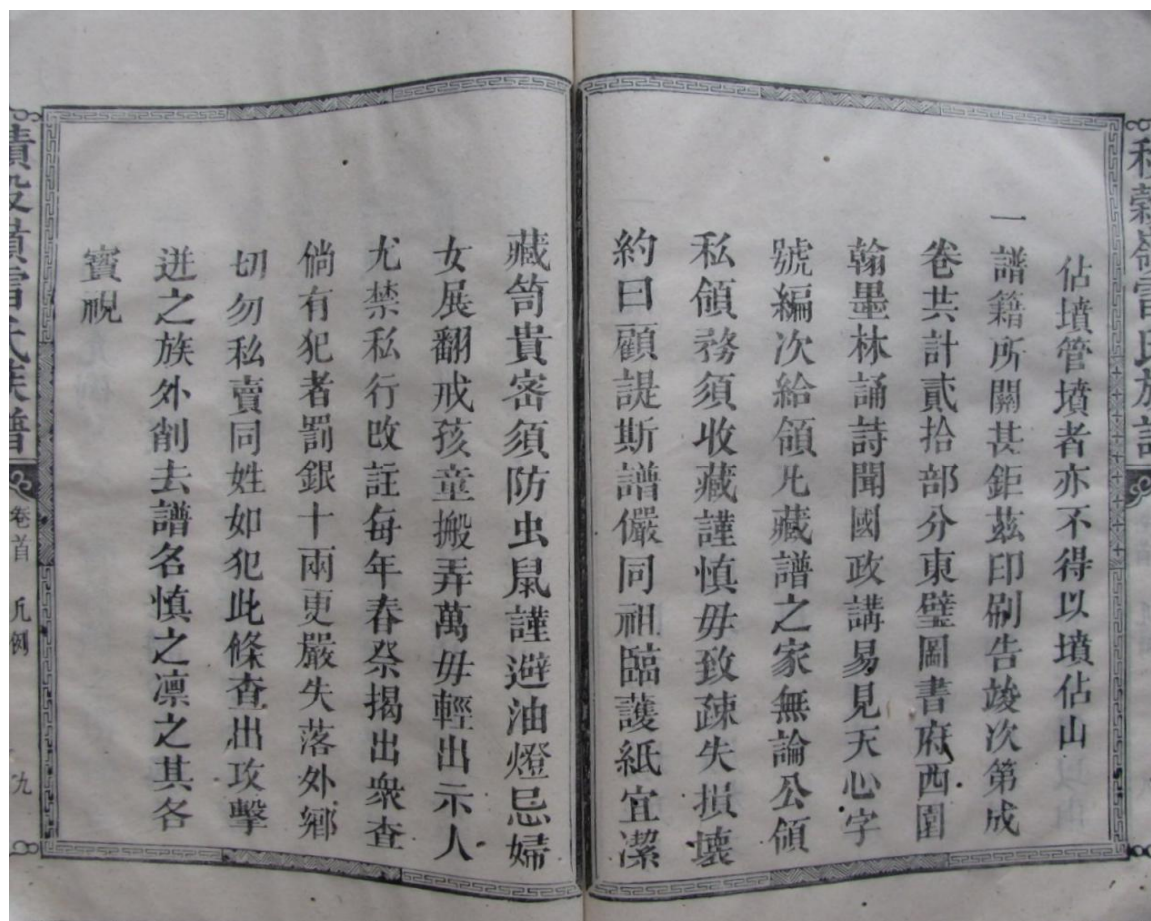 佔墳管墳者亦不得以墳佔山
一譜籍所關甚鉅茲印刷告竣次第成
卷共計貳拾部分東璧圖書府西園
翰墨林誦詩聞國政講易見天心字
號編次給領凡藏譜之家無論公領
私領務須收藏謹慎毋致疎失損壞
約曰顧諟斯譜儼同祖臨護紙宜潔
藏笥貴密須防虫鼠謹避油燈忌婦
女展翻戒孩童搬弄萬毋輕出示人
尤禁私行改註每年春祭揭出衆查
倘有犯者罰銀十兩更嚴失落外鄉
切勿私賣同姓如犯此條查出攻擊
逬之族外削去譜名慎之凛之其各
寳視
氏族譜
卷首
凡例
九